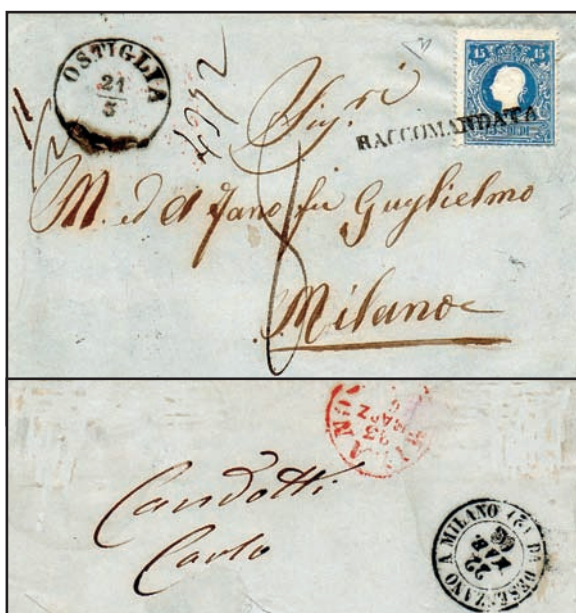 OSTIGLIA
21
3
15 15
SOLDI
RACCOMANDATA
4992
Sig.ri
M. ed A Fano fu Guglielmo
8
Milano
23
MARZ
Candotti
Carlo
DA DESENZANO A MILANO (2)
22
MAR.
60